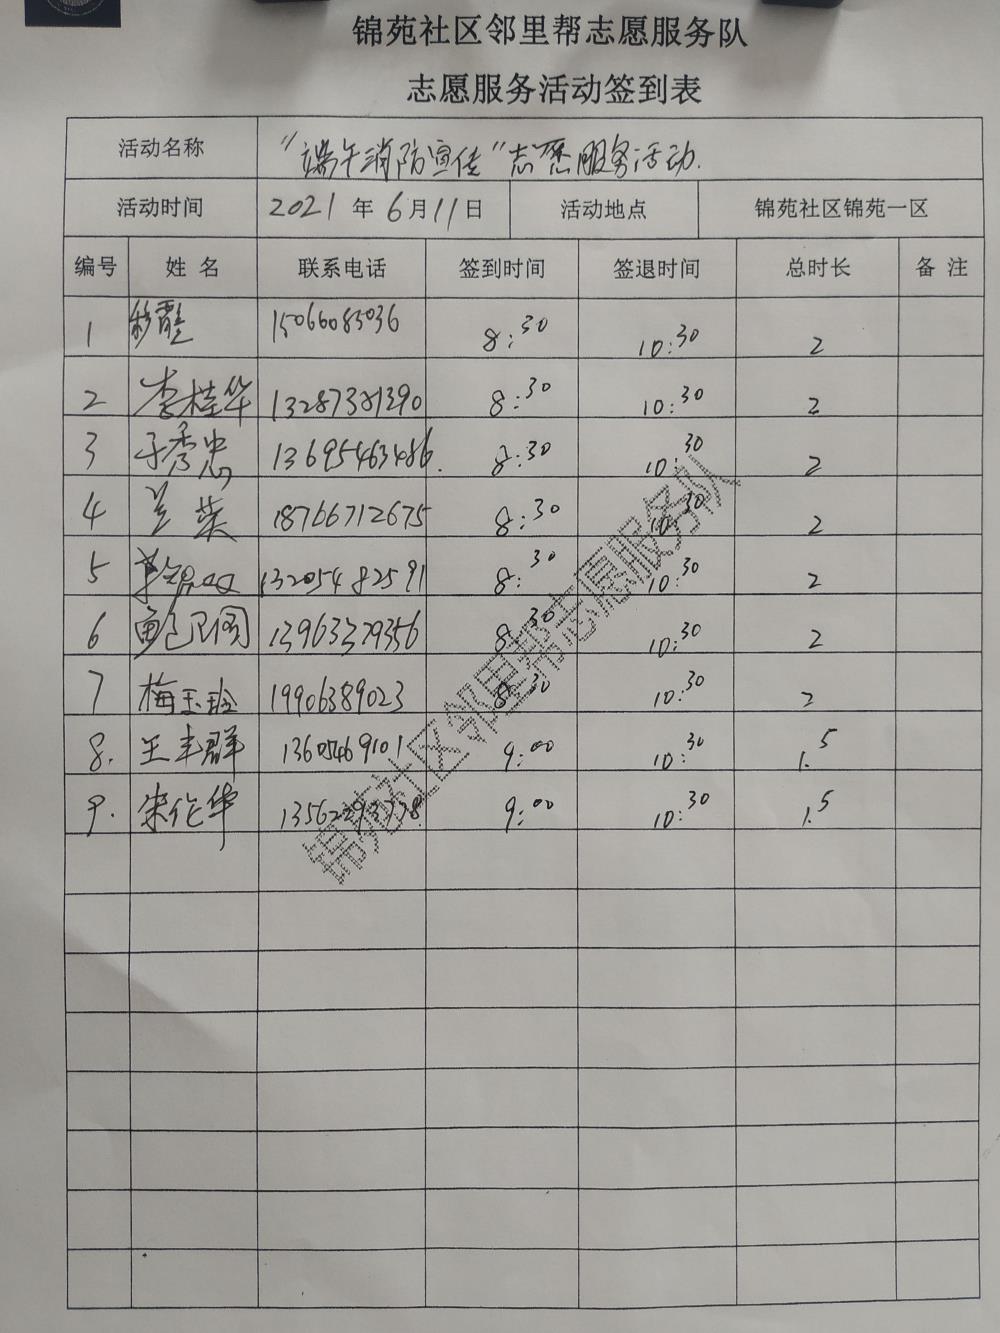 锦苑社区邻里帮志愿服务队
志愿服务活动签到表
活动名称 “端午消防宣传”志愿服务活动.
活动时间 2021 年 6 月 11 日 活动地点 锦苑社区锦苑一区
编号 姓 名 联系电话 签到时间 签退时间 总时长 备 注
1 15066085036 8:30 10:30 2
2 李桂华 13287381390 8:30 10:30 2
3 于秀忠 13695463486. 8:30 10:30 2
4 兰英 18766712675 8:30 10:30 2
5 13205482591 8:30 10:30 2
6 鲍卫阁 13963379356 8:30 10:30 2
7 梅玉玲 19906389023 8:30 10:30 2
8. 王丰群 13605469101 9:00 10:30 1.5
9. 宋伦华 9:00 10:30 1.5
锦苑社区邻里帮志愿服务队